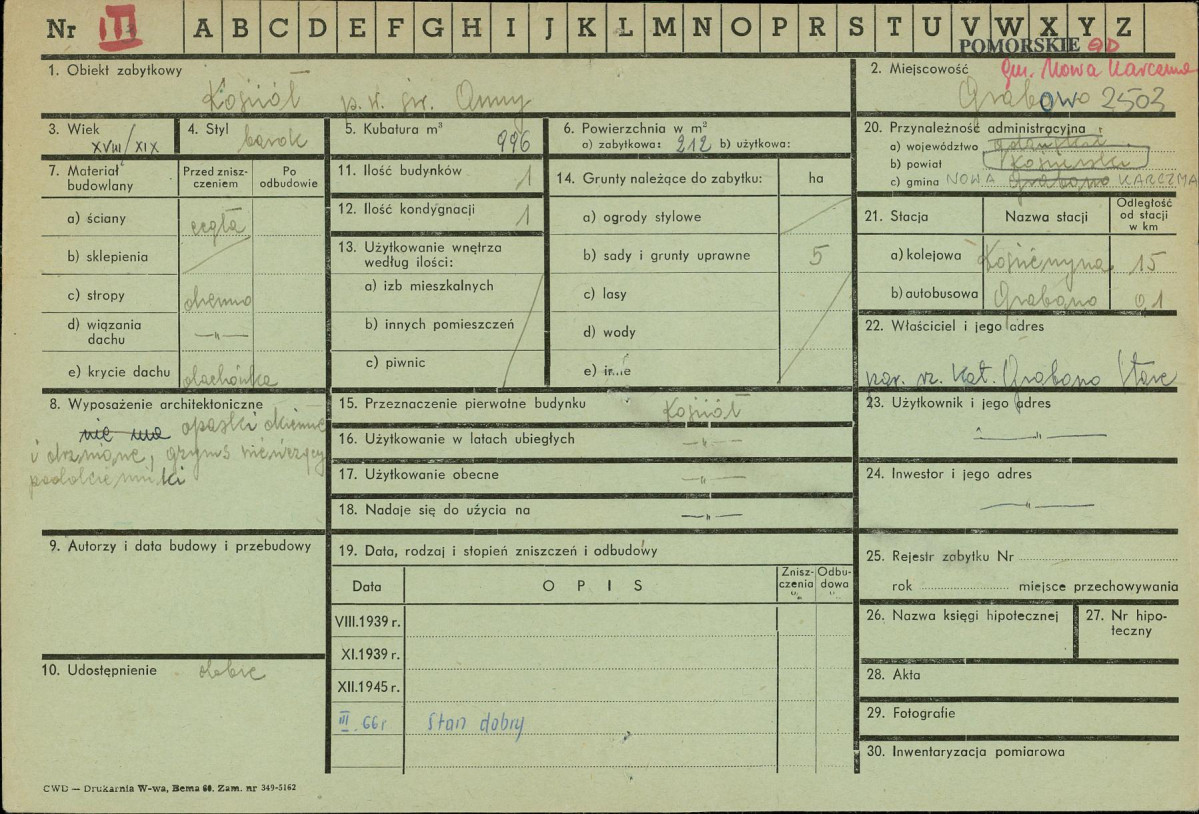 Nr III A B C D E F G H I J K L M N O P R S T U V W X Y Z
POMORSKIE GD
1. Obiekt zabytkowy
Kościół p.w. św. Anny
2. Miejscowość gm. Nowa Karczma
Grabowo 2503
3. Wiek
XVIII/XIX
4. Styl
barok
5. Kubatura m³
996
6. Powierzchnia w m²
a) zabytkowa: 212 b) użytkowa:
20. Przynależność administracyjna
a) województwo gdańskie
b) powiat Kościerski
c) gmina NOWA Grabowo KARCZMA
7. Materiał budowlany
Przed zniszczeniem
Po odbudowie
a) ściany cegła
b) sklepienia
c) stropy
d) wiązania dachu —"—
e) krycie dachu dachówka
11. Ilość budynków 1
12. Ilość kondygnacji 1
13. Użytkowanie wnętrza według ilości:
a) izb mieszkalnych
b) innych pomieszczeń
c) piwnic
14. Grunty należące do zabytku: ha
a) ogrody stylowe
b) sady i grunty uprawne 5
c) lasy
d) wody
e) in...e
21. Stacja
Nazwa stacji
Odległość od stacji w km
a) kolejowa Kościerzyna 15
b) autobusowa Grabowo 0,1
22. Właściciel i jego adres
par. rz. kat. Grabowo Stare
8. Wyposażenie architektoniczne
nie ma opaski okienne
i drzwiowe, gzyms wieńczący
15. Przeznaczenie pierwotne budynku Kościół
16. Użytkowanie w latach ubiegłych —"—
17. Użytkowanie obecne —"—
18. Nadaje się do użycia na —"—
23. Użytkownik i jego adres
—"—
24. Inwestor i jego adres
—"—
9. Autorzy i data budowy i przebudowy
10. Udostępnienie dobre
19. Data, rodzaj i stopień zniszczeń i odbudowy
Data OPIS Zniszczenia % Odbudowa %
VIII.1939 r.
XI.1939 r.
XII.1945 r.
III.66 r Stan dobry
25. Rejestr zabytku Nr
rok miejsce przechowywania
26. Nazwa księgi hipotecznej
27. Nr hipoteczny
28. Akta
29. Fotografie
30. Inwentaryzacja pomiarowa
CWD — Drukarnia W-wa, Bema 60. Zam. nr 349-5162